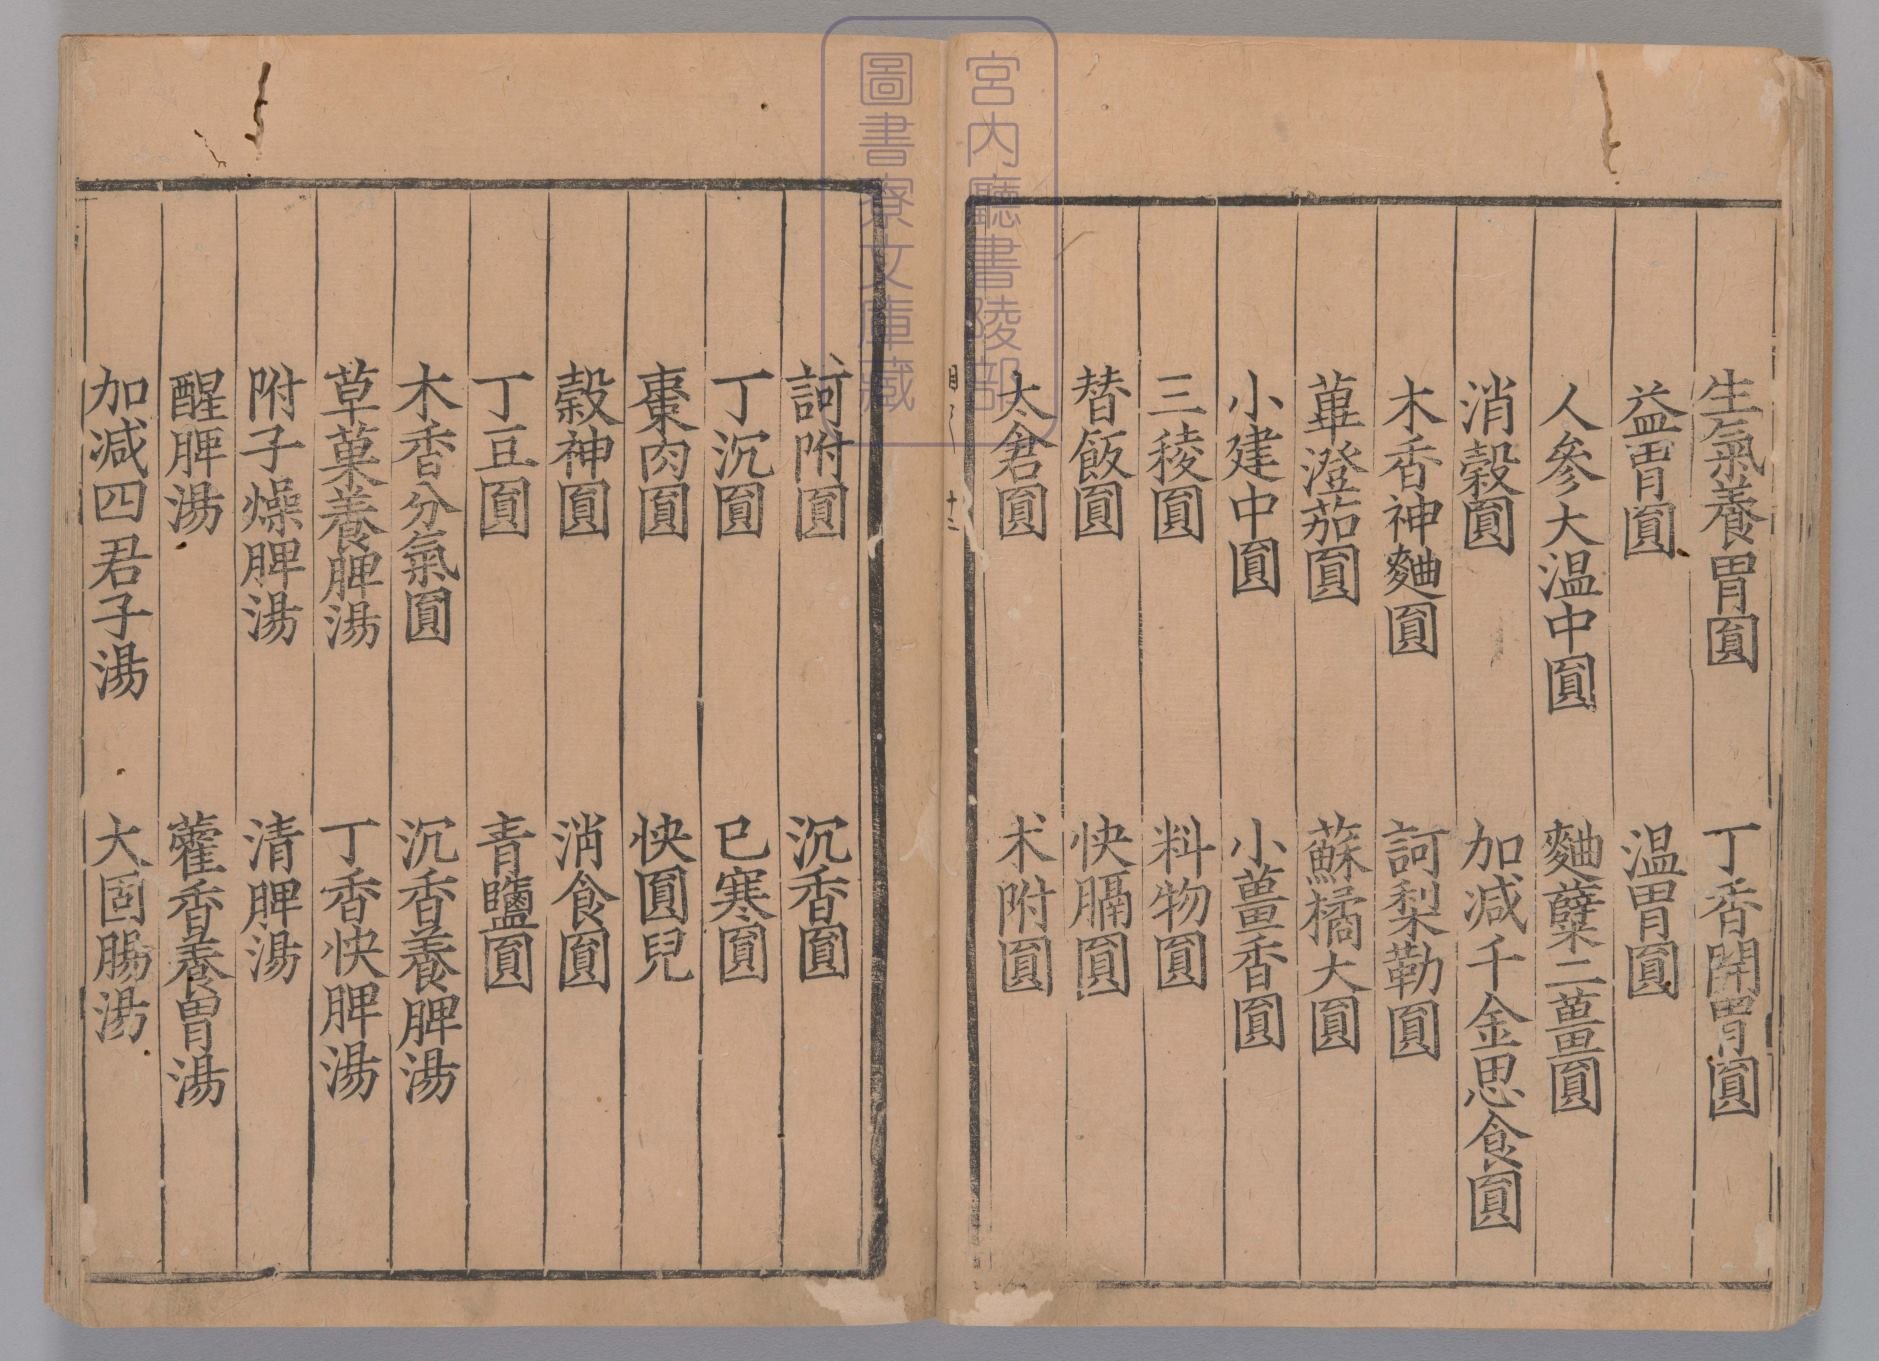 宮内廳書陵部
圖書寮文庫藏
生氣養胃圓　丁香開胃圓
益胃圓　温胃圓
人參大温中圓　麯蘖二薑圓
消穀圓　加减千金思食圓
木香神麯圓　訶梨勒圓
蓽澄茄圓　蘇橘大圓
小建中圓　小薑香圓
三稜圓　料物圓
替飯圓　快膈圓
太倉圓　朮附圓
十二
訶附圓　沉香圓
丁沉圓　已寒圓
棗肉圓　快圓兒
穀神圓　消食圓
丁豆圓　青鹽圓
木香分氣圓　沉香養脾湯
草菓養脾湯　丁香快脾湯
附子燥脾湯　清脾湯
醒脾湯　藿香養胃湯
加减四君子湯　大固腸湯